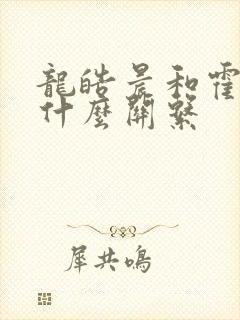 龍皓晨和霍
什麼關繫
犀共鳴